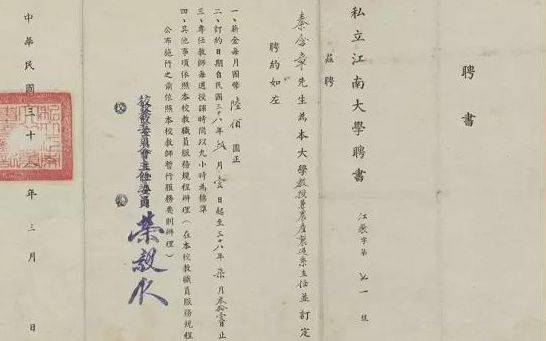 聘書
私立江南大學聘書
江教字第七一號
茲聘
秦含章先生為本大學教授兼農產製造系主任並訂定
聘約如左
一、薪金每月國幣陸佰圓正
二、訂約日期自民國三十八年貳月壹日起至三十八年柒月叁拾壹日止
三、專任教師每週授課時間以九小時為標準
四、其他事項依照本校教職員服務規程辦理（在本校教職員服務規程
公布施行之前依照本校教師暫行服務要則辦理）
校務委員會主任委員
榮毅仁
中華民國三十 年三月 日